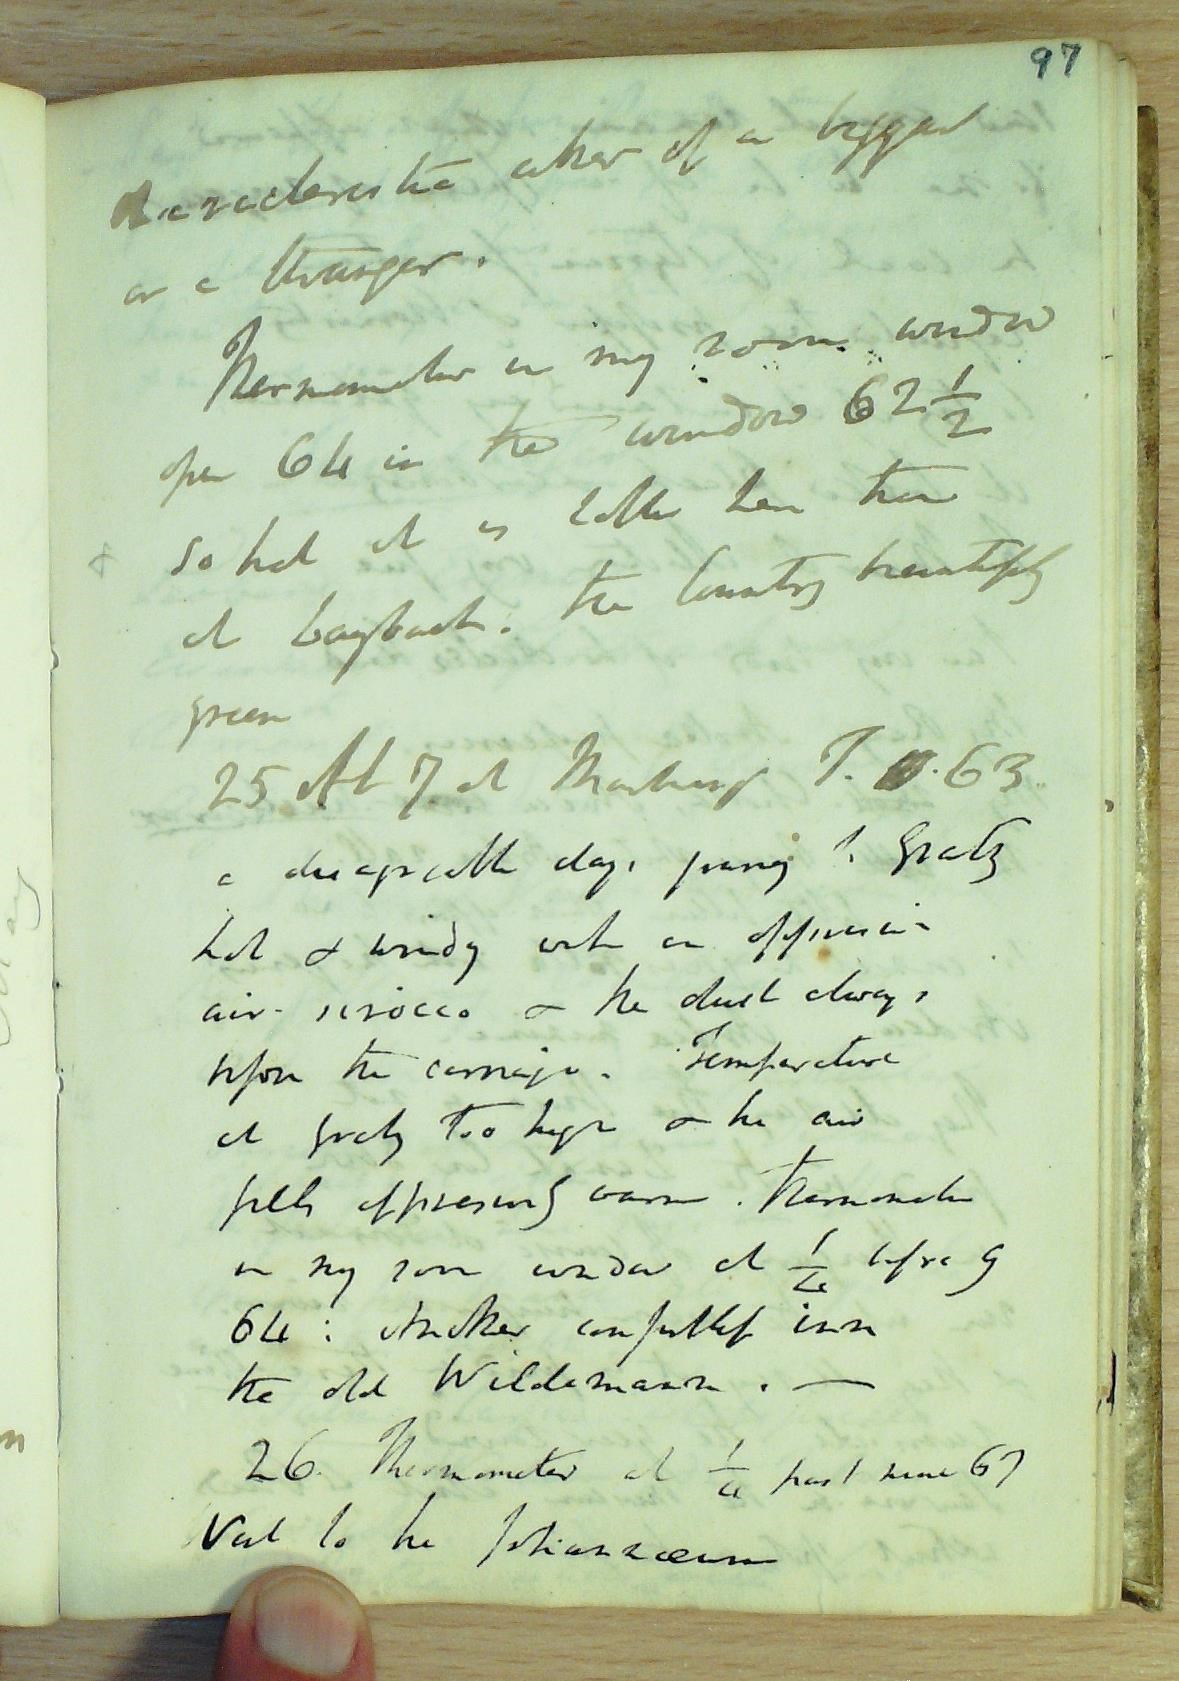 97
characteristic either of a beggar
or a stranger.
Thermometer in my room window
open 64 in the window 62 1/2
so that it is hotter here than
at Laybach. The Country beautifully
green
25 At 7 at Marburg T. 63
a disagreeable day, journey to Gratz
hot & windy with an oppressive
air- sirocco & the dust always
upon the carriage. Temperature
at Gratz too high & the air
feels oppressively warm. Thermometer
in my room window at 1/4 before 9
64: at the inn
the old Wildemann. —
26. Thermometer at 1/4 past nine 67
Visit to the Johannaeum